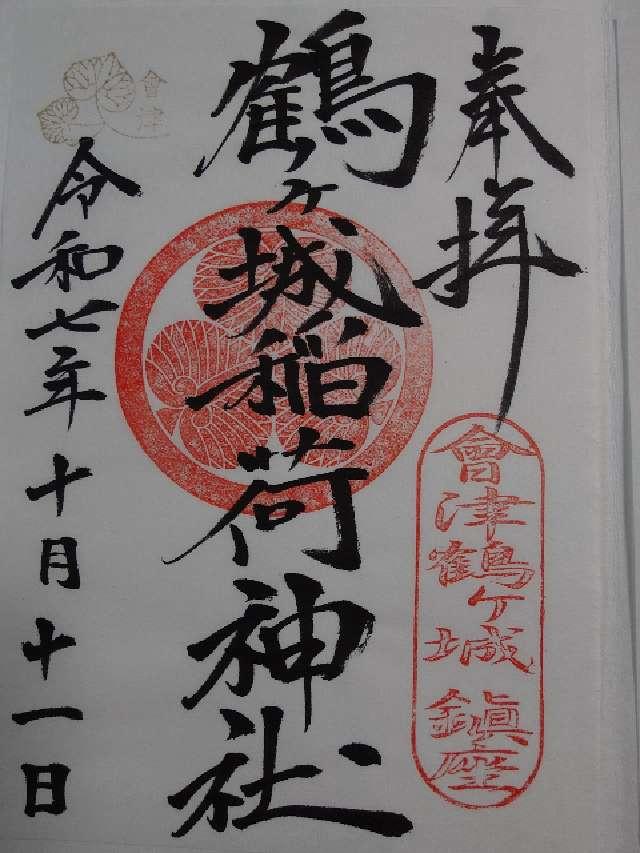 奉拝
會津鶴ヶ城 鎮座
鶴ヶ城稲荷神社
會津
令和七年十月十一日